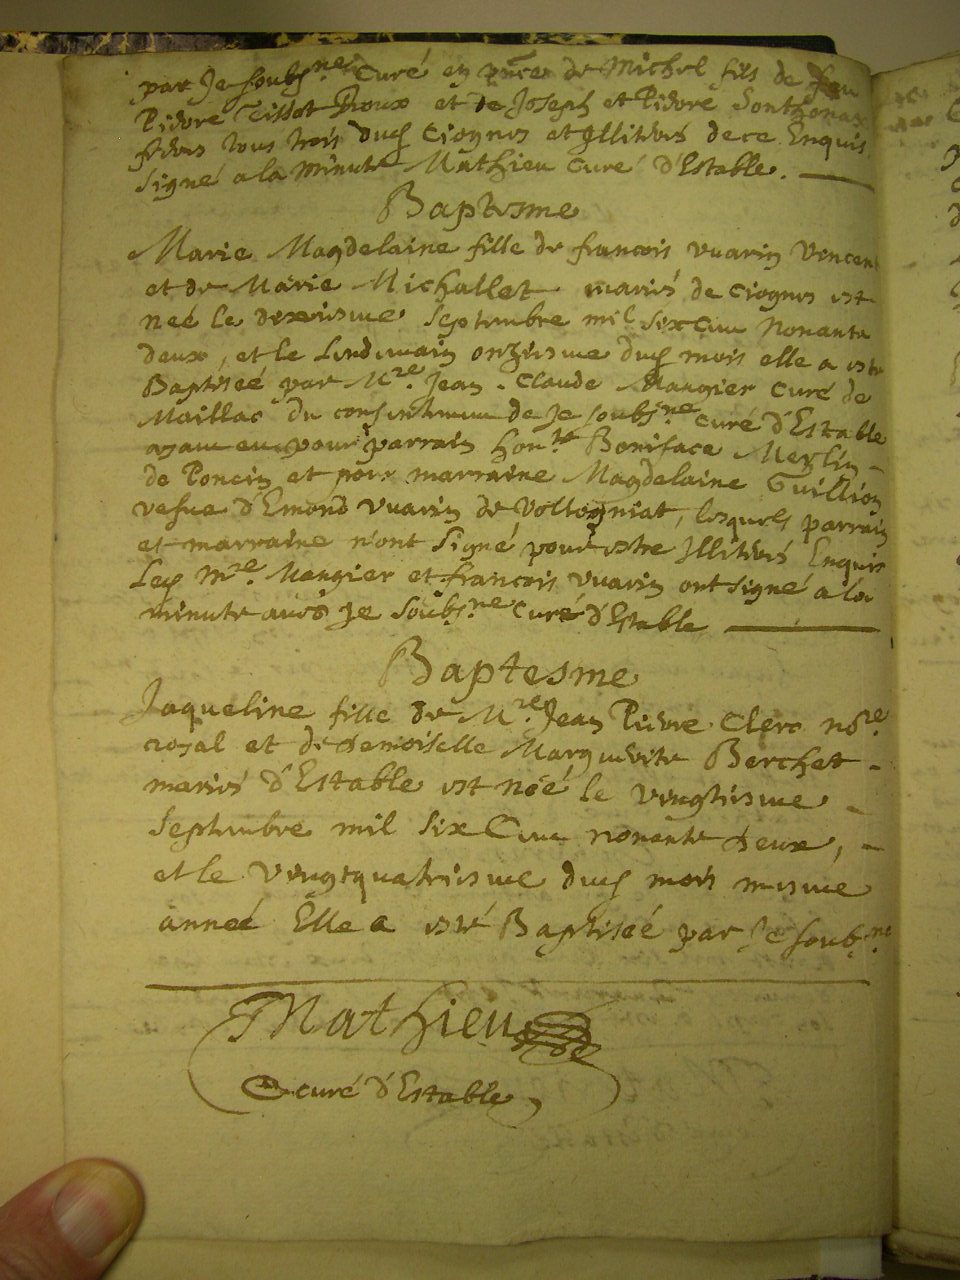 par Je soubs.né Curé en pnce de Michel fils de feu
Pierre Tissot Proux et de Joseph et Pierre Sonthonax
freres tous trois dud Ciognos et Illiteres de ce Enquis
signé a la Minute Mathieu Curé d'Estable.
Baptesme
Marie Magdelaine fille de francois vuarin Vincent
et de Marie Michallet mariés de Ciognos est
née le dixiesme Septembre mil six Cent Nonante
deux, et le Lendemain onziesme dud mois elle a esté
Baptiséé par M.re Jean. Claude Mangier Curé de
Maillac du consentement de Je soubs.né Curé d'Estable
ayant eu pour parrain hon.te Boniface Merlin
de Poncin et pour marraine Magdelaine Guillion
vefue d'Emond vuarin de Voltogniat, lesquels parrain
et marraine n'ont signé pour estre Illiterés Enquis
Led M.re Mangier et francois vuarin ont signé a la
minute avec Je soub.s.né Curé d'Estable
Baptesme
Jaqueline fille de M.re Jean Pierre Clerc no.re
royal et de demoiselle Marguerite Berchet
mariés d'Estable est néé le vingtiesme
Septembre mil six Cent nonante deux,
et le vingtquatriesme dud mois mesme
année Elle a esté Baptiséé par Je soub.né
Mathieu
curé d'Estable